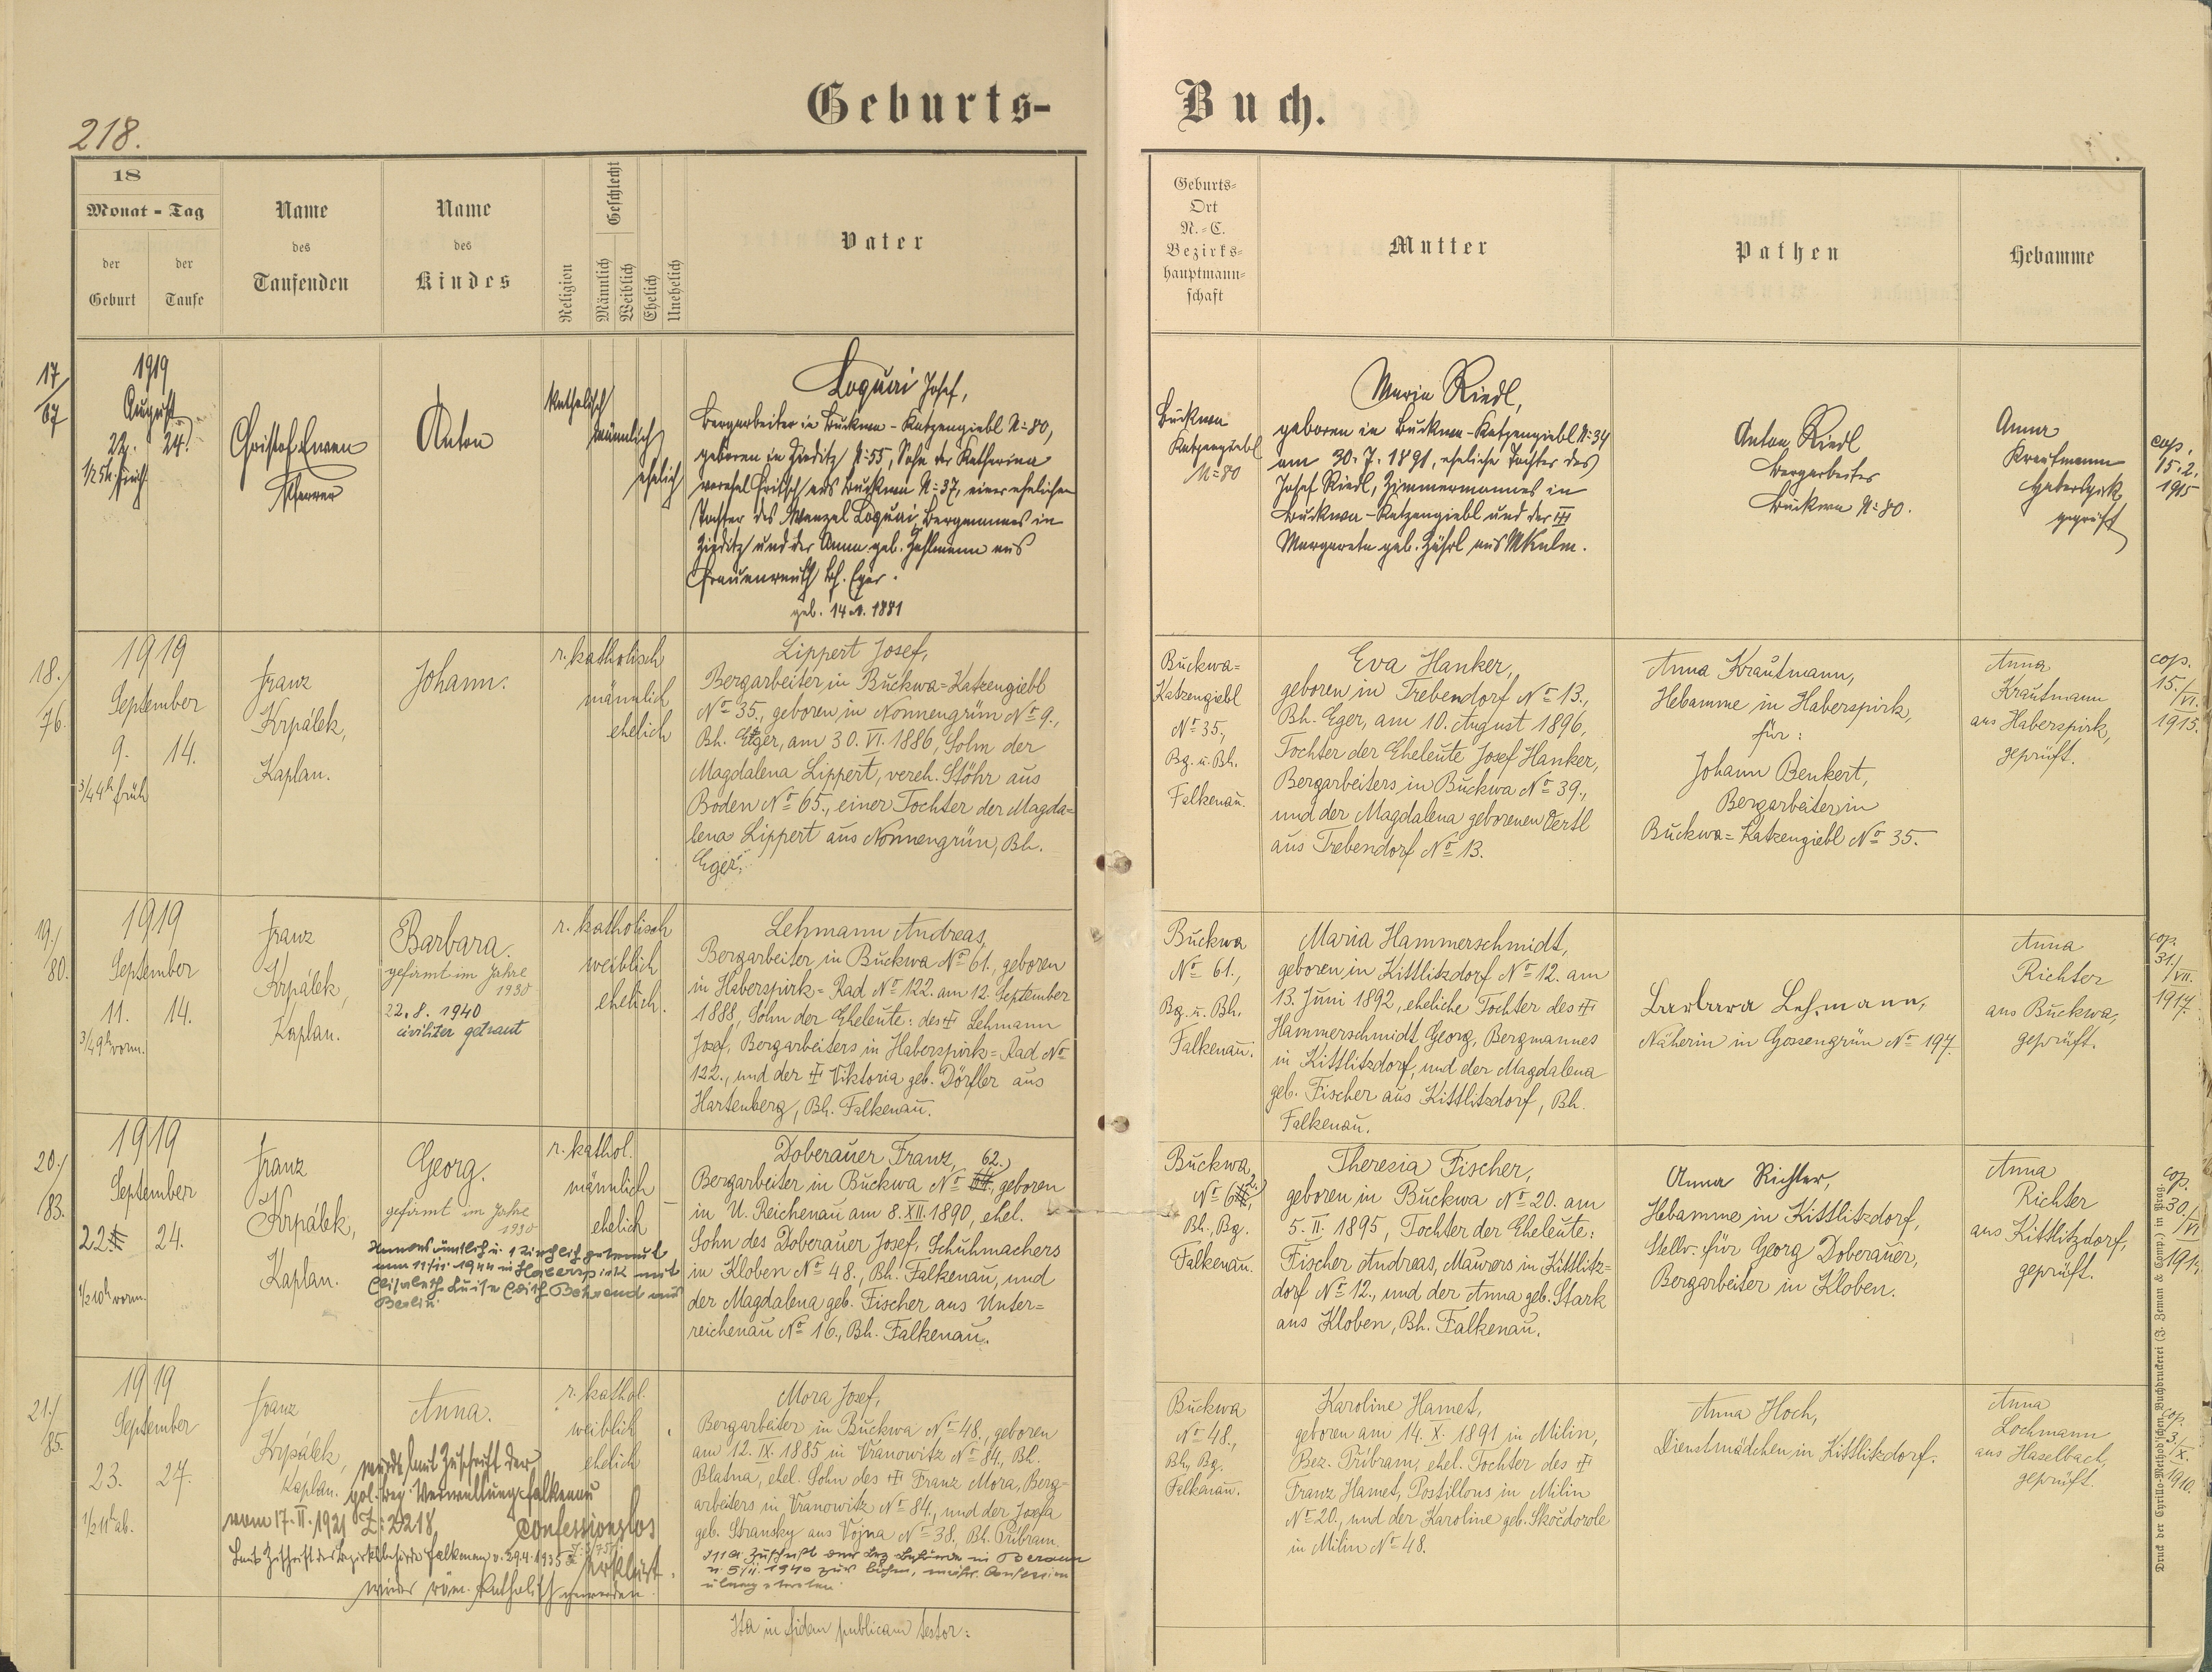 218.
Geburts-
Buch.
18
Monat - Tag
der
Geburt
der
Taufe
Name
des
Taufenden
Name
des
Kindes
Religion
Geschlecht
Männlich
Weiblich
Ehelich
Unehelich
Vater
Geburts-
Ort
N.-C.
Bezirks-
hauptmann-
schaft
Mutter
Pathen
Hebamme
17
67
1919
August
22. 24.
1/2 5 h. früh
Christof
Pfarrer
Anton
katholisch
männlich
ehelich
Loquai Josef,
Bergarbeiter in Buckwa - Katzengiebl N: 80,
geboren in Zieditz N: 55, Sohn der Katharina
verehel. Fritsch aus Buckwa N: 37, einer ehelichen
Tochter des Wenzel Loquai Bergmannes in
Zieditz und der Anna geb. aus
Frauenreuth Bh. Eger.
1881
Buckwa
Katzengiebl
N: 80
Maria Riedl,
geboren in Buckwa - Katzengiebl N: 34
am 30. 7. 1891, eheliche Tochter des
Josef Riedl, Zimmermannes in
Buckwa - Katzengiebl und der ‡
Margareta geb. aus MKulm.
Anton Riedl
Bergarbeiter
Buckwa N: 80.
Anna
Krautmann
Haberspirk
geprüft
cop.
15. 2.
1915
18./
76.
1919
September
9. 14.
3/4 4 h früh
Franz
Krpálek,
Kaplan.
Johann.
r. katholisch
männlich
ehelich
Lippert Josef,
Bergarbeiter in Buckwa=Katzengiebl
No 35., geboren in Nonnengrün No 9.,
Bh. Eger, am 30. VI. 1886, Sohn der
Magdalena Lippert, vereh. Stöhr aus
Boden No 65., einer Tochter der Magda=
lena Lippert aus Nonnengrün, Bh.
Eger.
Buckwa=
Katzengiebl
No 35.,
Bg. u. Bh.
Falkenau.
Eva Hanker,
geboren in Trebendorf No 13.,
Bh. Eger, am 10. August 1896,
Tochter der Eheleute Josef Hanker,
Bergarbeiters in Buckwa No 39.,
und der Magdalena geborenen Oertl
aus Trebendorf No 13.
Anna Krautmann,
Hebamme in Haberspirk,
für:
Johann Benkert,
Bergarbeiter in
Buckwa=Katzengiebl No 35.
Anna
Krautmann
aus Haberspirk,
geprüft.
cop.
15./
VI.
1915.
19./
80.
1919
September
11. 14.
3/4 9 h vorm.
Franz
Krpálek,
Kaplan.
Barbara.
gefirmt im Jahre
1930
22. 8. 1940
civiliter getraut
r. katholisch
weiblich
ehelich.
Lehmann Andreas,
Bergarbeiter in Buckwa No 61., geboren
in Haberspirk=Rad No 122. am 12. September
1888, Sohn der Eheleute: des ‡ Lehmann
Josef, Bergarbeiters in Haberspirk=Rad No
122., und der ‡ Viktoria geb. Dörfler aus
Hartenberg, Bh. Falkenau.
Buckwa
No 61.,
Bg. u. Bh.
Falkenau.
Maria Hammerschmidt,
geboren in Kittlitzdorf No 12. am
13. Juni 1892, eheliche Tochter des ‡
Hammerschmidt Georg, Bergmannes
in Kittlitzdorf, und der Magdalena
geb. Fischer aus Kittlitzdorf, Bh.
Falkenau.
Barbara Lehmann,
Näherin in Gossengrün No 197.
Anna
Richter
aus Buckwa,
geprüft.
cop.
31./
VII.
1917.
20./
83.
1919
September
22. 24.
1/2 10 h vorm.
Franz
Krpálek,
Kaplan.
Georg.
gefirmt im Jahre
1930
am 11/11 1944 in Haberspirk mit
Elisabeth Luise Edith Behrend aus
Berlin.
r. kathol.
männlich
ehelich
Doberauer Franz,
62.
Bergarbeiter in Buckwa No geboren
in U. Reichenau am 8. XII. 1890, ehel.
Sohn des Doberauer Josef, Schuhmachers
in Kloben No 48., Bh. Falkenau, und
der Magdalena geb. Fischer aus Unter=
reichenau No 16., Bh. Falkenau.
Buckwa
No 62.,
Bh., Bg.
Falkenau.
Theresia Fischer,
geboren in Buckwa No 20. am
5. II. 1895, Tochter der Eheleute:
Fischer Andreas, Maurers in Kittlitz=
dorf No 12., und der Anna geb. Stark
aus Kloben, Bh. Falkenau.
Anna Richter,
Hebamme in Kittlitzdorf,
Stellv. für Georg Doberauer,
Bergarbeiter in Kloben.
Anna
Richter
aus Kittlitzdorf,
geprüft.
cop.
30./
VI.
21./
85.
1919
September
23. 27.
1/2 11 h ab.
Franz
Krpálek,
Kaplan.
Anna.
r. kathol.
weiblich
ehelich
wurde laut Zuschrift der
pol. Bez. Verwaltung Falkenau
vom 17. II. 1921 Z: 2218 confessionslos
erklärt.
Laut Zuschrift der Bezirksbehörde Falkenau v. 29.4.1935
wieder röm. katholisch geworden.
Mora Josef,
Bergarbeiter in Buckwa No 48., geboren
am 12. IX. 1885 in Vranowitz No 84., Bh.
Blatna, ehel. Sohn des ‡ Franz Mora, Berg=
arbeiters in Vranowitz No 84., und der Josefa
geb. Stransky aus Vojna No 38., Bh. Pribram.
Zuschrift der Bez. Behörde in Beraun
v. 5/11. 1940 zur böhm. mähr. Confession
übergetreten.
Buckwa
No 48.,
Bh., Bg.
Falkenau.
Karoline Hamet,
geboren am 14. X. 1891 in Milin,
Bez. Přibram, ehel. Tochter des ‡
Franz Hamet, Postillons in Milin
No 20., und der Karoline geb. Skočdorole
in Milin No 48.
Anna Hoch,
Dienstmädchen in Kittlitzdorf.
Anna
Lochmann
aus Haselbach,
geprüft.
cop.
3./
X.
1910.
Ita in fidem publicam testor:
Druck der Cyrillo-Method'schen Buchdruckerei (J. Zeman & Comp.) in Prag.